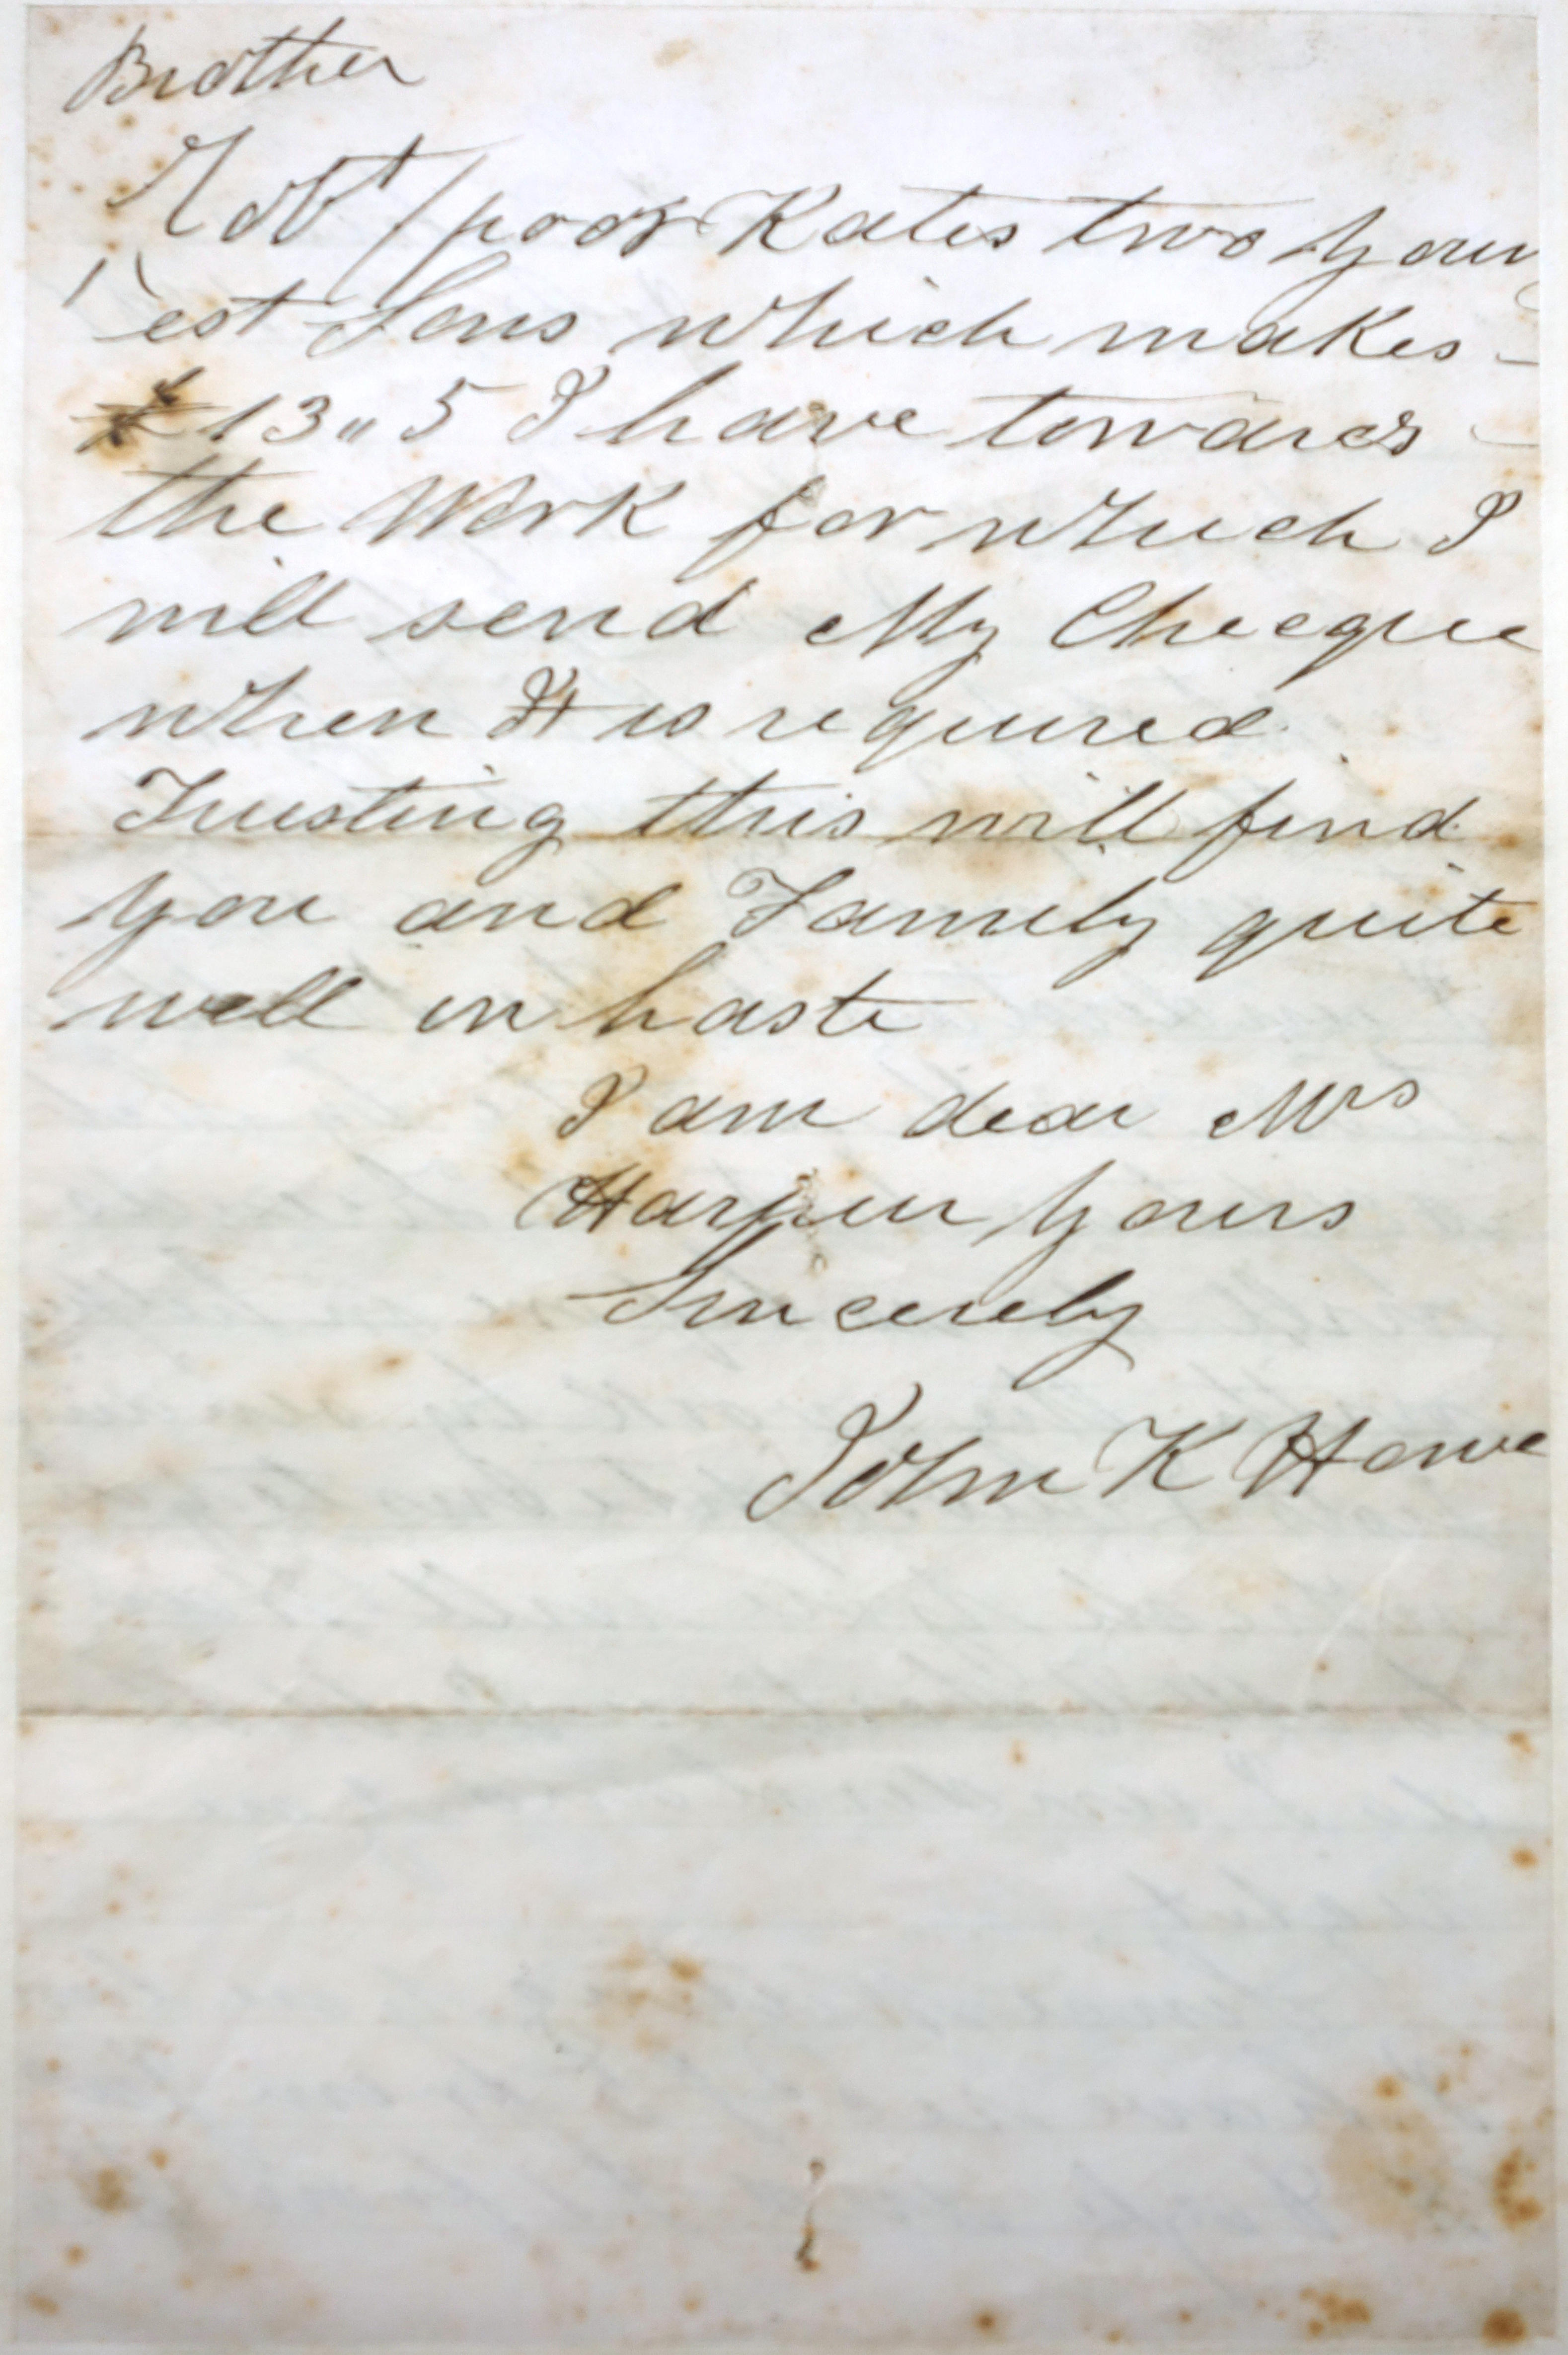 Brother
Robt / poor Kates two youn
est Sons which makes -
£13 „ 5 I have towards -
the Work for which I
will send My Checque
when It is required
Trusting this will find
you and Family quite
well in haste
I am dear Mrs
Harpur yours
Sincerely
John K Howe